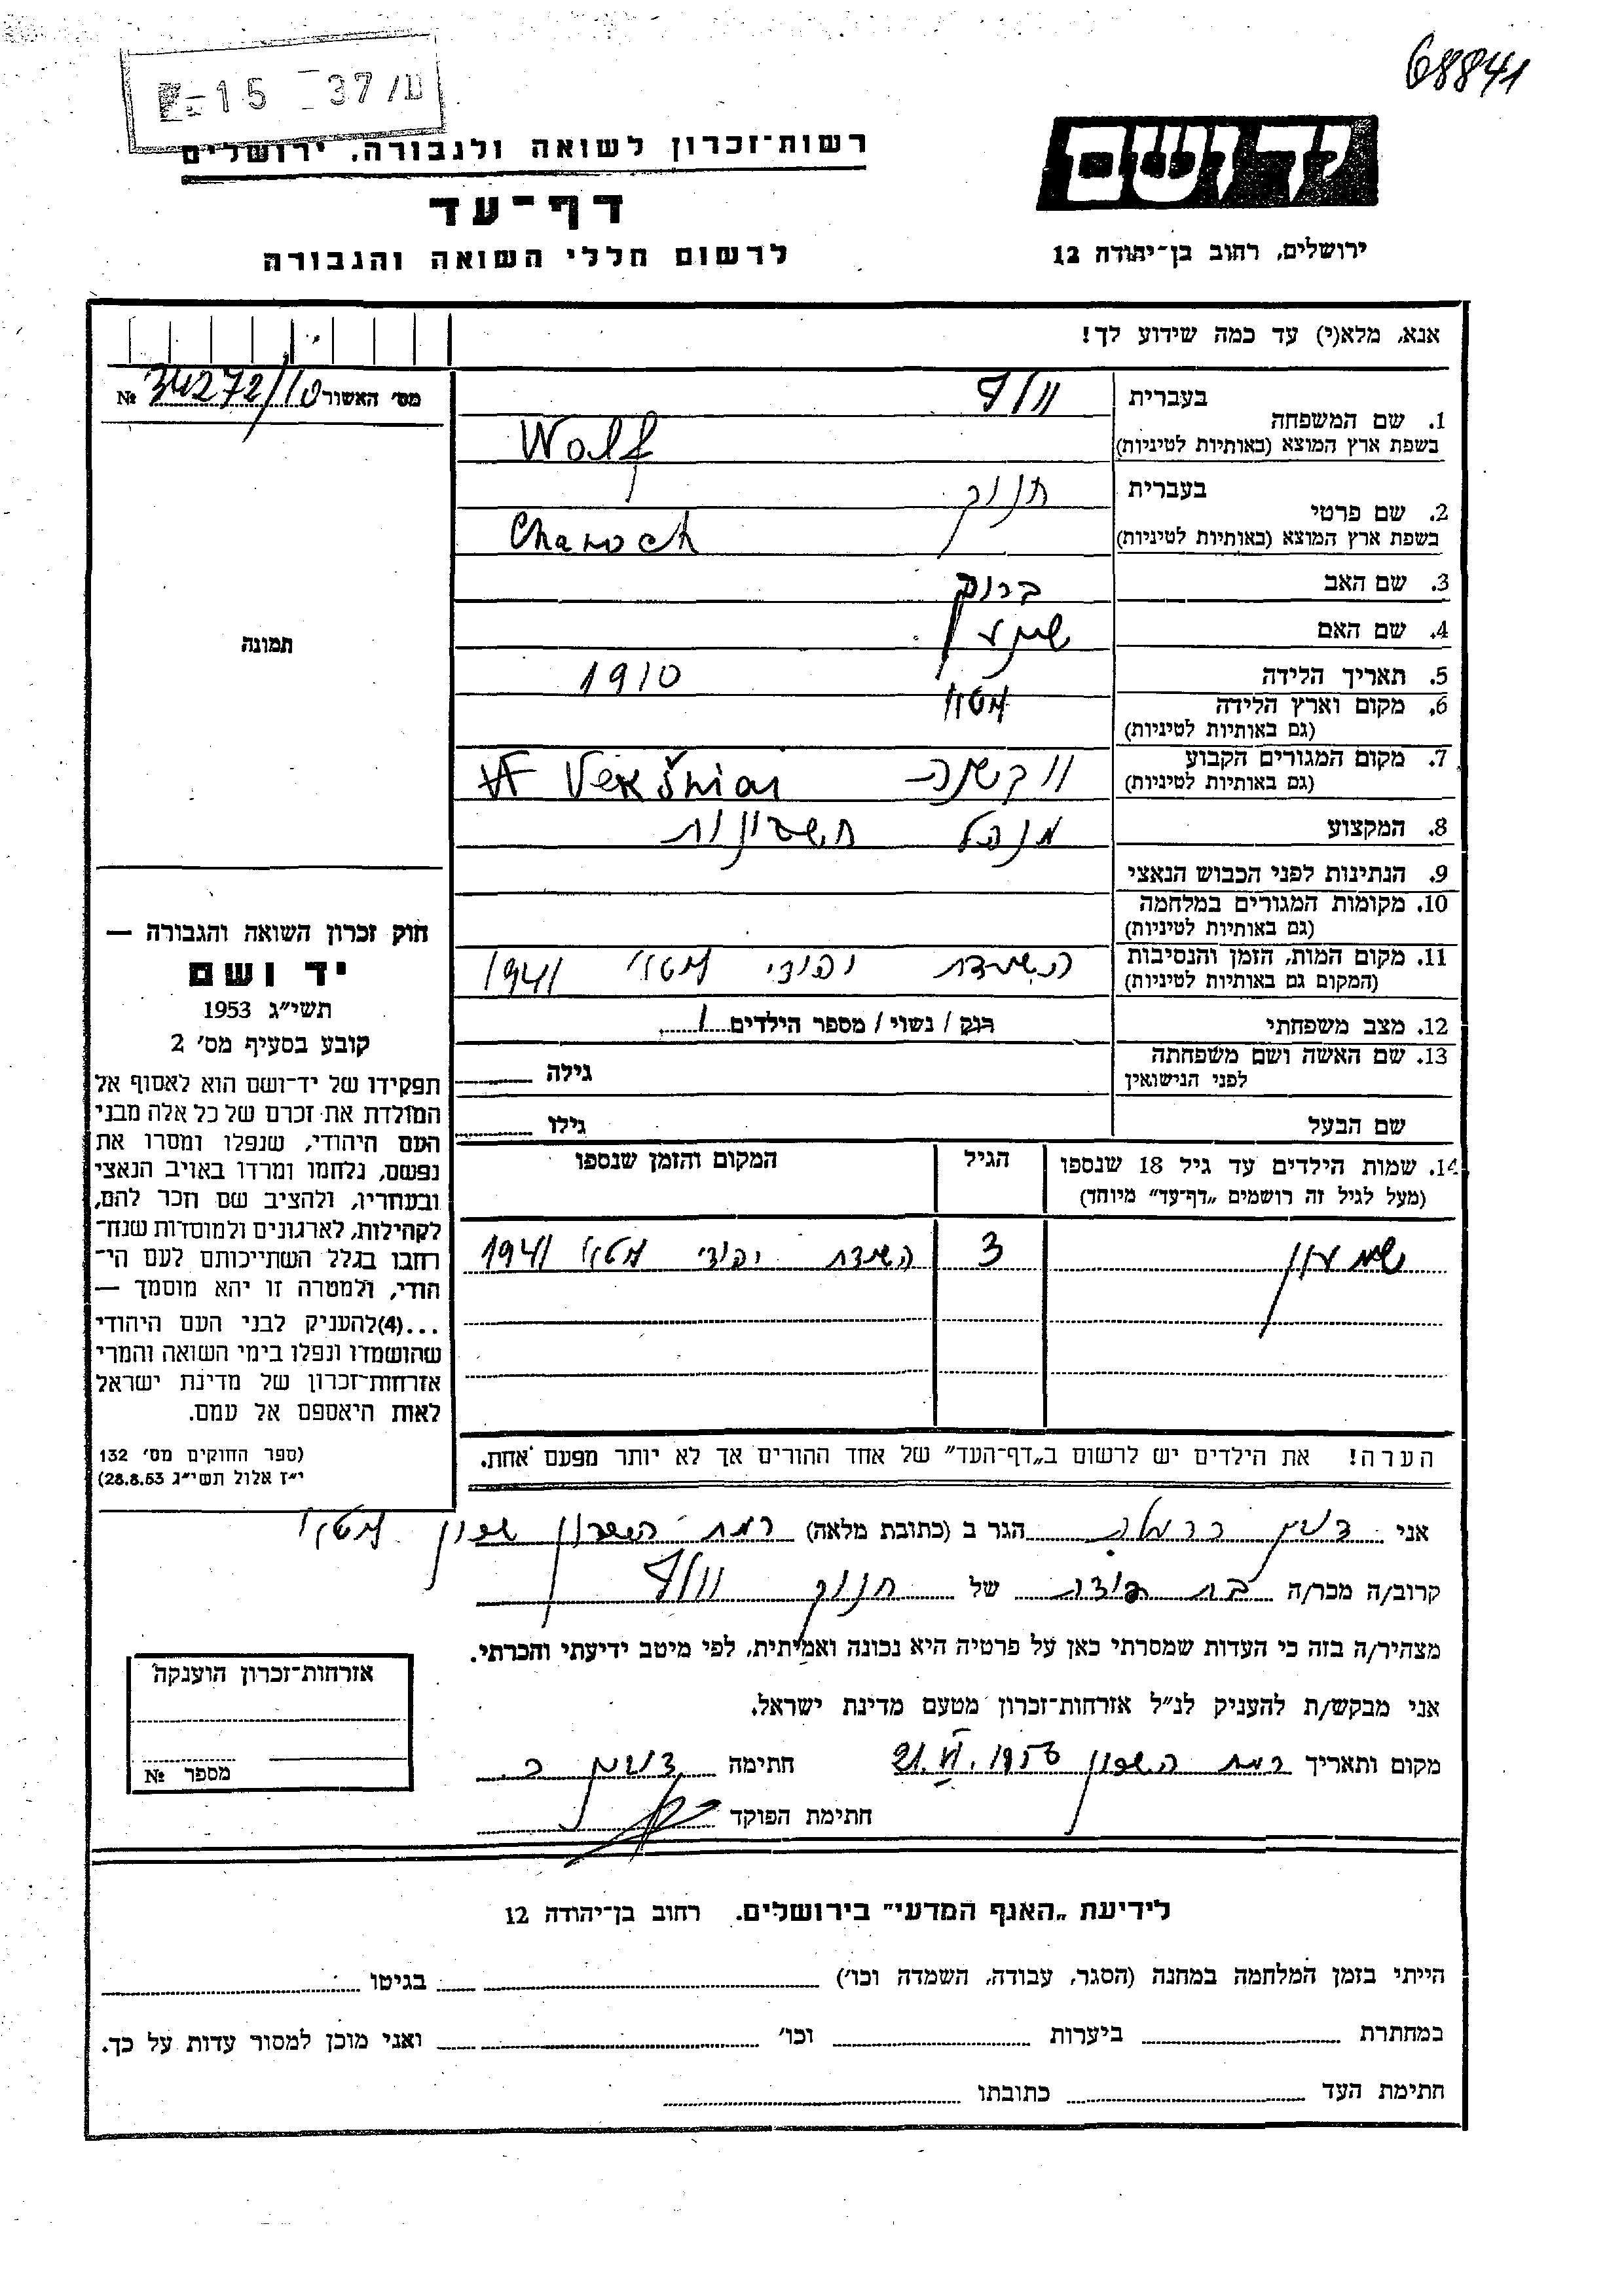 68841
15 – 37/ט
יד ושם
רשות־זכרון לשואה ולגבורה, ירושלים
דף־עד
ירושלים, רחוב בן־יהודה 12
לרשום חללי השואה והגבורה
אנא, מלא(י) עד כמה שידוע לך!
מס׳ האשור 34272/10 №
תמונה
בעברית
1. שם המשפחה
בשפת ארץ המוצא (באותיות לטיניות) Wolf
בעברית חנוך
2. שם פרטי
בשפת ארץ המוצא (באותיות לטיניות) Chanoch
3. שם האב ברוך
4. שם האם
5. תאריך הלידה 1910
6. מקום וארץ הלידה
(גם באותיות לטיניות)
7. מקום המגורים הקבוע Vekšniai
(גם באותיות לטיניות)
8. המקצוע מנהל חשבונות
9. הנתינות לפני הכבוש הנאצי
10. מקומות המגורים במלחמה
(גם באותיות לטיניות)
11. מקום המות, הזמן והנסיבות השמדת יהודי 1941
(המקום גם באותיות לטיניות)
12. מצב משפחתי רוק / נשוי / מספר הילדים 1
13. שם האשה ושם משפחתה
לפני הנישואין גילה
שם הבעל גילו
14. שמות הילדים עד גיל 18 שנספו הגיל המקום והזמן שנספו
(מעל לגיל זה רושמים „דף־עד” מיוחד)
שמעון 3 השמדת יהודי 1941
הערה! את הילדים יש לרשום ב„דף־העד” של אחד ההורים אך לא יותר מפעם אחת.
חוק זכרון השואה והגבורה —
יד ושם
תשי״ג 1953
קובע בסעיף מס׳ 2
תפקידו של יד־ושם הוא לאסוף אל
המולדת את זכרם של כל אלה מבני
העם היהודי, שנפלו ומסרו את
נפשם, נלחמו ומרדו באויב הנאצי
ובעוזריו, ולהציב שם וזכר להם,
לקהילות, לארגונים ולמוסדות שנח־
רבו בגלל השתייכותם לעם הי־
הודי, ולמטרה זו יהא מוסמך —
...(4) להעניק לבני העם היהודי
שהושמדו ונפלו בימי השואה והמרי
אזרחות־זכרון של מדינת ישראל
לאות היאספם אל עמם.
(ספר החוקים מס׳ 132
י״ז אלול תשי״ג 28.8.53)
אני כרמלה הגר ב (כתובת מלאה) רמת השרון שכון
קרוב/ה מכר/ה בת דודה של חנוך
מצהיר/ה בזה כי העדות שמסרתי כאן על פרטיה היא נכונה ואמיתית, לפי מיטב ידיעתי והכרתי.
אני מבקש/ת להעניק לנ״ל אזרחות־זכרון מטעם מדינת ישראל.
מקום ותאריך רמת השרון 21.VI.1956 חתימה
חתימת הפוקד
אזרחות־זכרון הוענקה
מספר №
לידיעת „האגף המדעי” בירושלים, רחוב בן־יהודה 12
הייתי בזמן המלחמה במחנה (הסגר, עבודה, השמדה וכו׳) בגיטו
במחתרת ביערות וכו׳ ואני מוכן למסור עדות על כך.
חתימת העד כתובתו